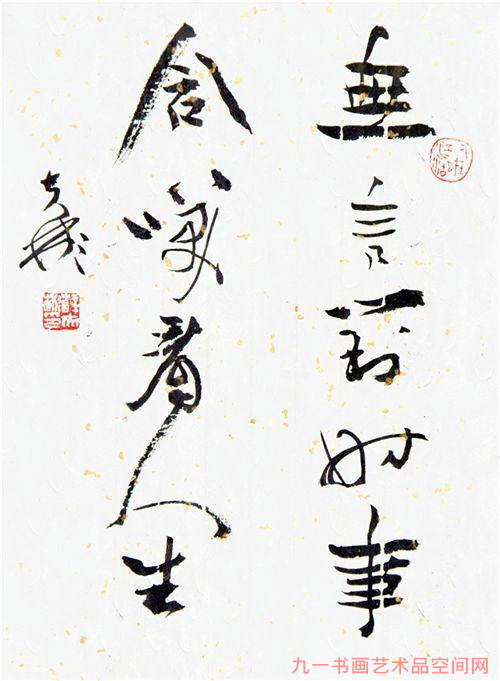 無言對时事
含笑看人生
九一书画艺术品空间网